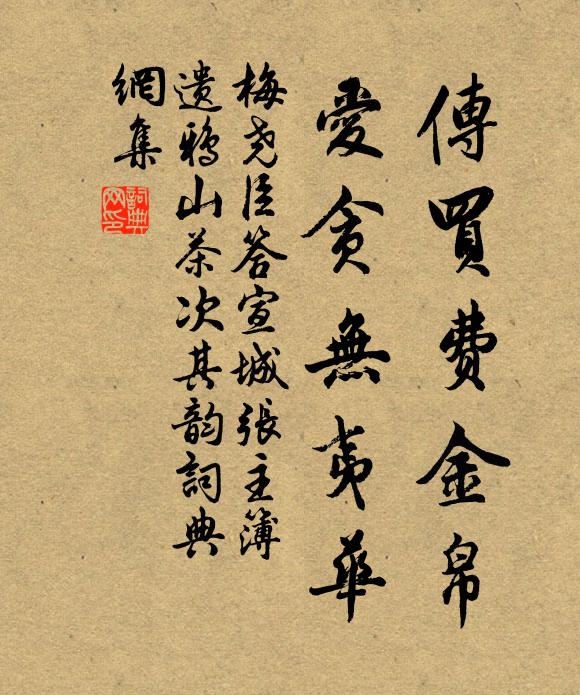 傳買費金帛
愛貪無夷華
梅堯臣答宣城張主簿
遺鴉山茶次其韵詞典
網集
詞典
网印